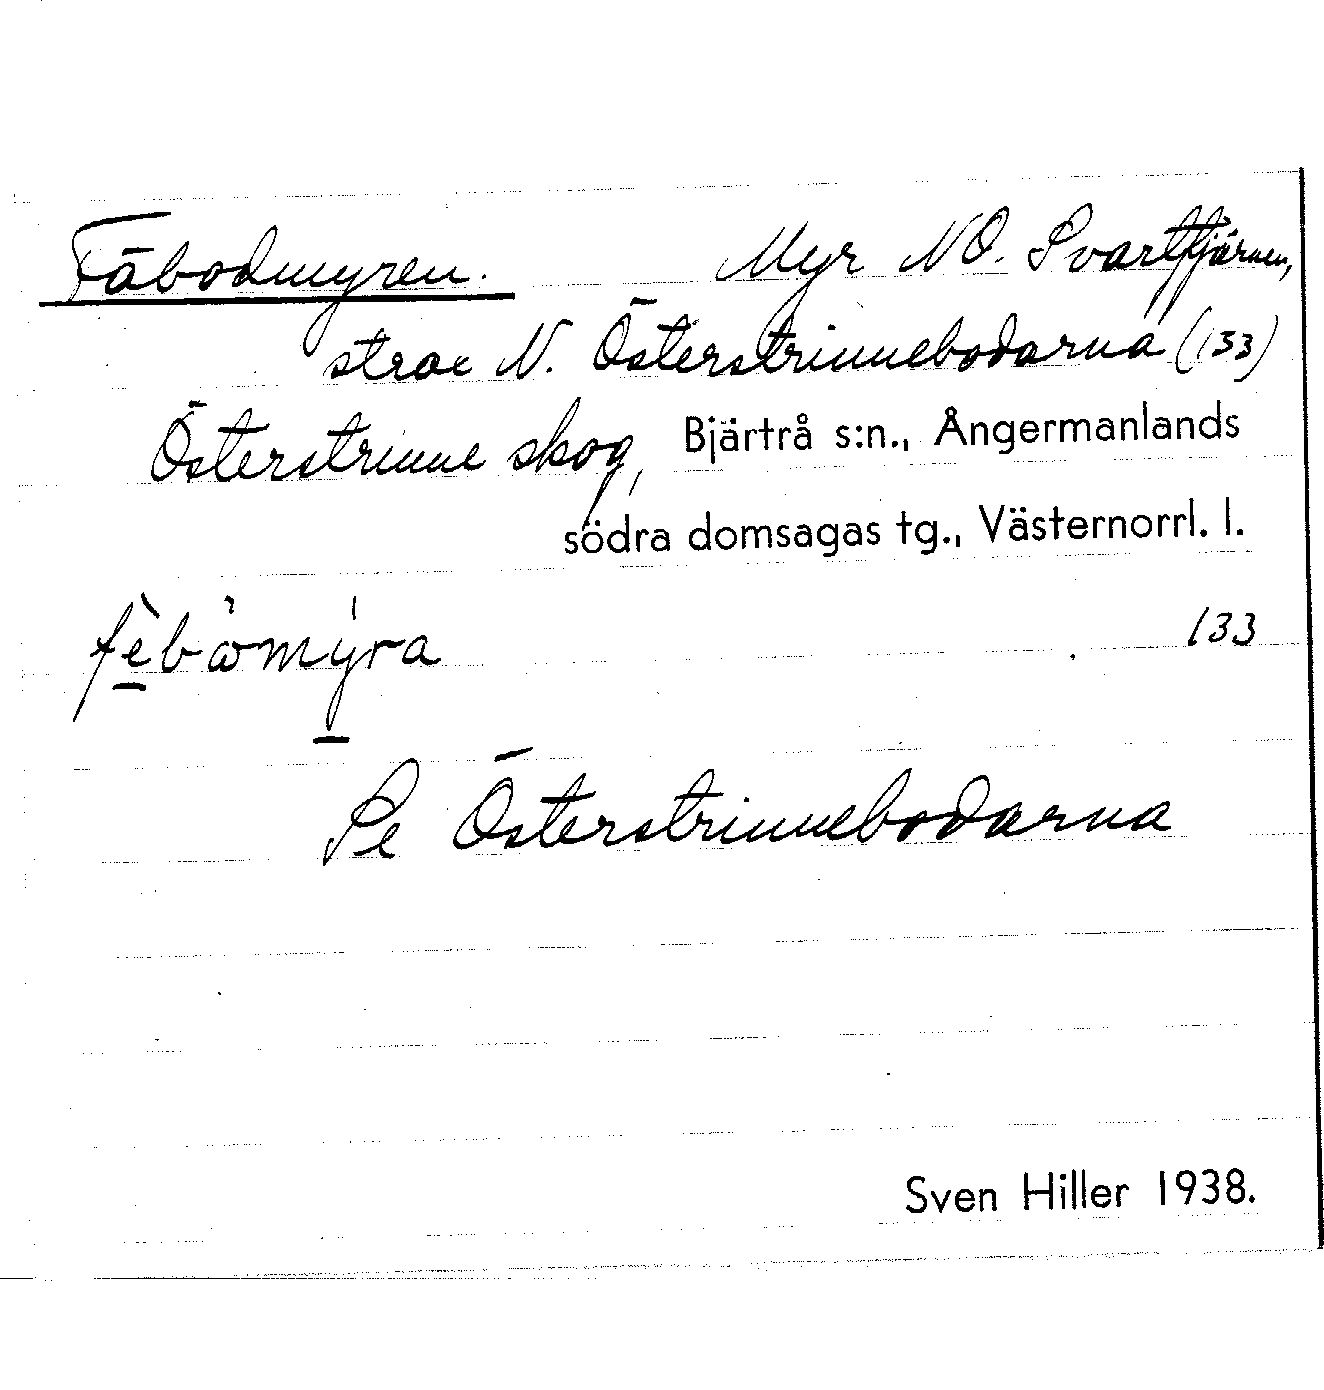 Fäbodmyren. Myr NO. Svarttjärnen,
strax N. Österstrinnebodarna (133)
Österstrinne skog, Bjärtrå s:n., Ångermanlands
södra domsagas tg., Västernorrl. l.
133
Se Österstrinnebodarna
Sven Hiller 1938.